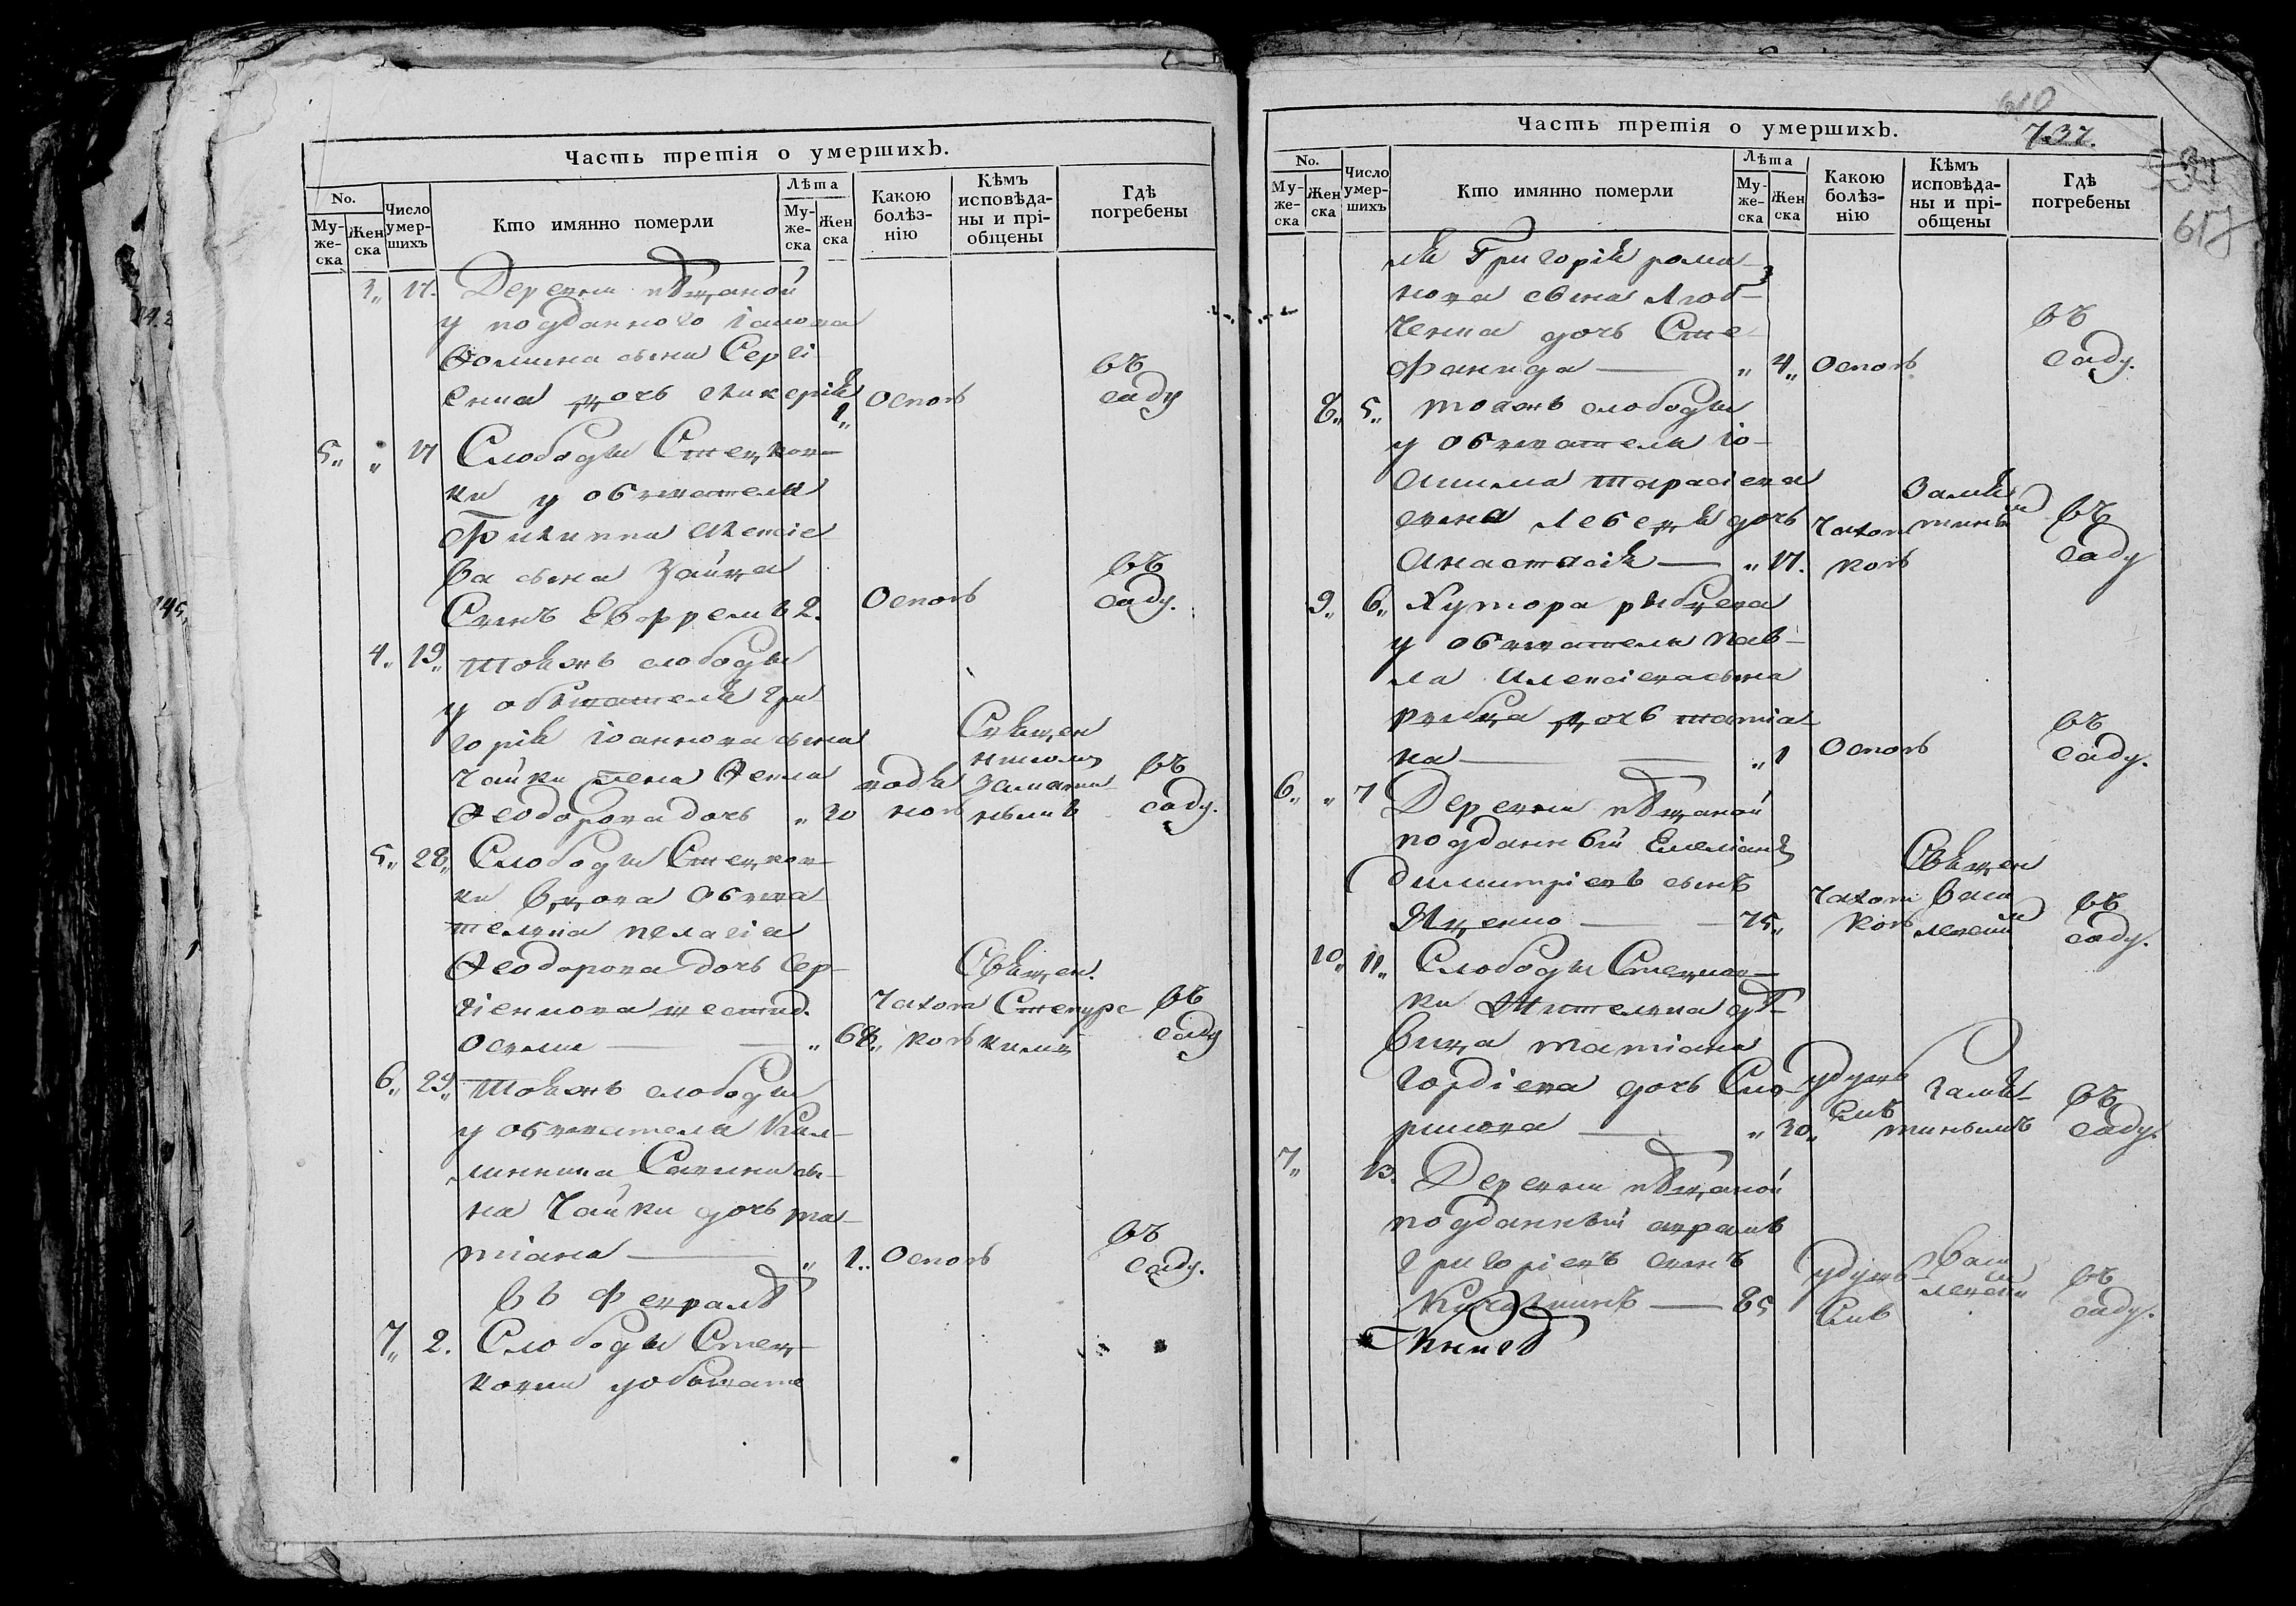 Часть третія о умершихъ.
No.
Му-
же-
ска
Жен
ска
Число
умер-
шихъ
Кто имянно померли
Лѣта
Му-
же-
ска
Жен
ска
Какою
болѣз-
нію
Кѣмъ
исповѣда-
ны и прі-
общены
Гдѣ
погребены
3„ 17. Деревни пѣщаной
у подданного
Фомина сына Сергі
енка дочь гликеріѧ 1„ Оспою въ саду
5„ „ 17 Слободы Стецков-
ки у обывателѧ
Филиппа
ва сына Зайца
Сынъ Ефремъ 2. Оспою въ саду.
4„ 19„ Тоѧжъ слободы
у обывателѧ гри
горіѧ іоаннова сына
Чайки жена Фекла
Феодорова дочь „ 30 въ саду.
5„ 28„ Слободы Стецков-
ки вдова обыва
телька пелагіа
Феодорова дочь Сер-
гіенкова шестид.
осьми „ 68„ Чахот кою Свѧщен. въ саду
6„ 29„ Тоѧжъ слободы
у обывателѧ Кал-
линника Саввина сы-
на Чайки дочь та-
тіана „ 1„ Оспою въ саду.
въ Февралѣ
7„ 2. Слободы Стец-
ковки у обывате
Часть третія о умершихъ.
610
737.
617
No.
Му-
же-
ска
Жен
ска
Число
умер-
шихъ
Кто имянно померли
Лѣта
Му-
же-
ска
Жен
ска
Какою
болѣз-
нію
Кѣмъ
исповѣда-
ны и прі-
общены
Гдѣ
погребены
лѧ Григоріѧ рома-
нова сына
ченка дочь Сте-
фанида „ 4„ Оспою въ саду.
8„ 5„ тоѧжъ слободы
у обывателѧ іо-
акима тарасіева
сына Лебедѧ дочь
Анастасіѧ „ 17. Чахот кою въ саду
9„ 6„ Хутора рыбцева
у обывателѧ пав-
ла Алексіева сына
рыбца дочь татіа-
на „ 1 Оспою въ саду.
6„ „ 7 Деревни пѣщаной
подданный Емеліанъ
димитріевъ сынъ
Яценко 75„ Чахот кою Свѧщен васи лемъ въ саду.
10„ 11„ Слободы Стецков-
ки Жителька дѣ-
вица татіана
гордіева дочь
„ 30„ удушь емъ въ саду.
7„ 13. Деревни пѣщаной
подданный аврамъ
григоріевъ сынъ
85 удушь емъ въ саду.